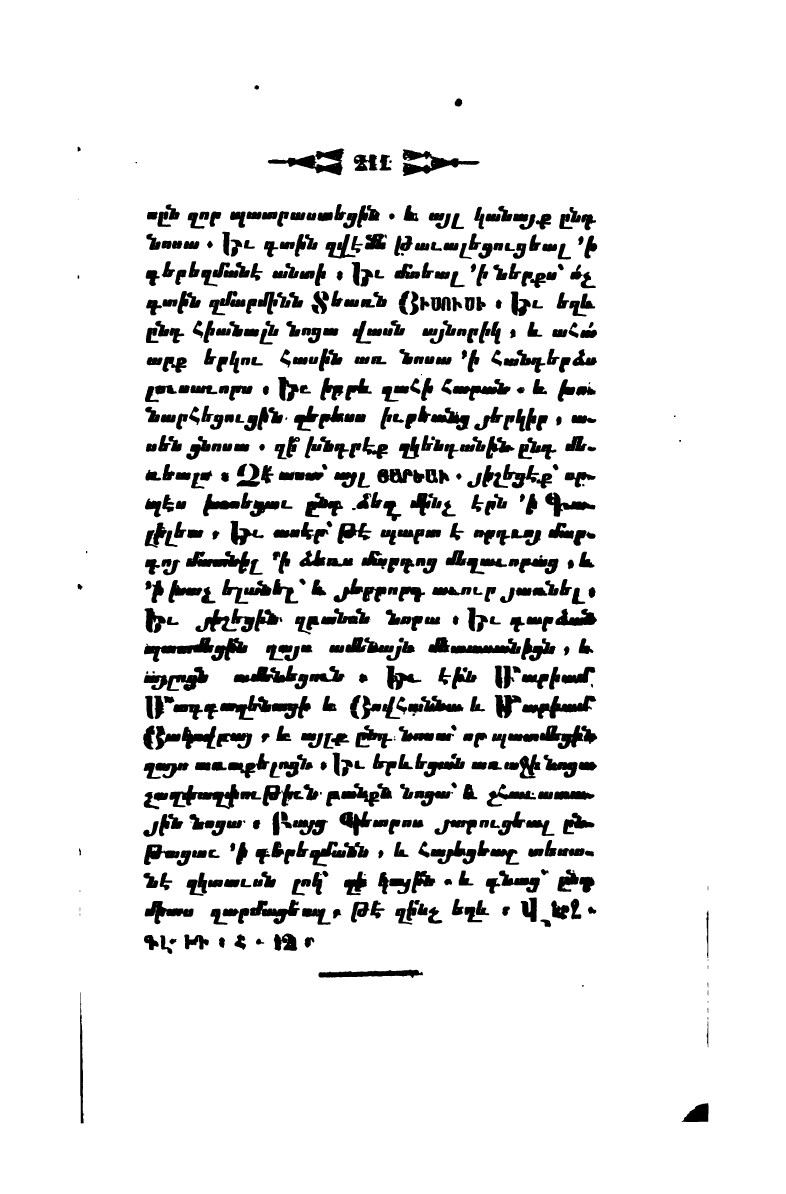 211
սըն զոր պատրաստեցին. և այլ կանայք ընդ
նոսա. Եւ գտին զվէմն թաւալեցուցեալ ՚ի
գերեզմանէ անտի։ Եւ մտեալ ՚ի ներքս՝ ոչ
գտին զմարմինն Տեառն ՅԻՍՈՒՍԻ։ Եւ եղև
ընդ հիանալն նոցա վասն այնորիկ, և ահա՛
արք երկու հասին առ նոսա ՚ի հանդերձս
լուսաւորս։ Եւ իբրև զահի հարան. և խո֊
նարհեցուցին զերեսս իւրեանց յերկիր, ա֊
սեն ցնոսա. զի՞ խնդրէք զկենդանին ընդ մե֊
ռեալս։ Չէ աստ՝ այլ ՅԱՐԵԱՒ. յիշեցէք՝ որ֊
պէս խօսեցաւ ընդ ձեզ մինչ էրն ՚ի Գա֊
լիլեա, Եւ ասէր՝ թէ պարտ է որդւոյ մար֊
դոյ մատնիլ ՚ի ձեռս մարդոց մեղաւորաց, և
՚ի խաչ ելանել՝ և յերրորդ աւուր յառնել։
Եւ յիշեցին զբանսն նորա։ Եւ դարձան
պատմեցին զայս ամենայն մետասանիցն, և
այլոցն ամենեցուն։ Եւ էին Մարիամ
Մագդաղենացի և Յովհաննա և Մարիամ
Յակովբայ, և այլք ընդ նոսա՝ որ պատմեցին
զայս առաքելոցն, Եւ երևեցան առաջի նոցա
չաղփաղփութիւն բանքն նոցա՝ և չհաւատա֊
յին նոցա։ Բայց Պետրոս յարուցեալ ըն֊
թացաւ ՚ի գերեզմանն, և հայեցեալ տեսա֊
նէ զկտաւսն լոկ՝ զի կային. և գնաց՝ ընդ
միտս զարմացեալ, թէ զինչ եղև։